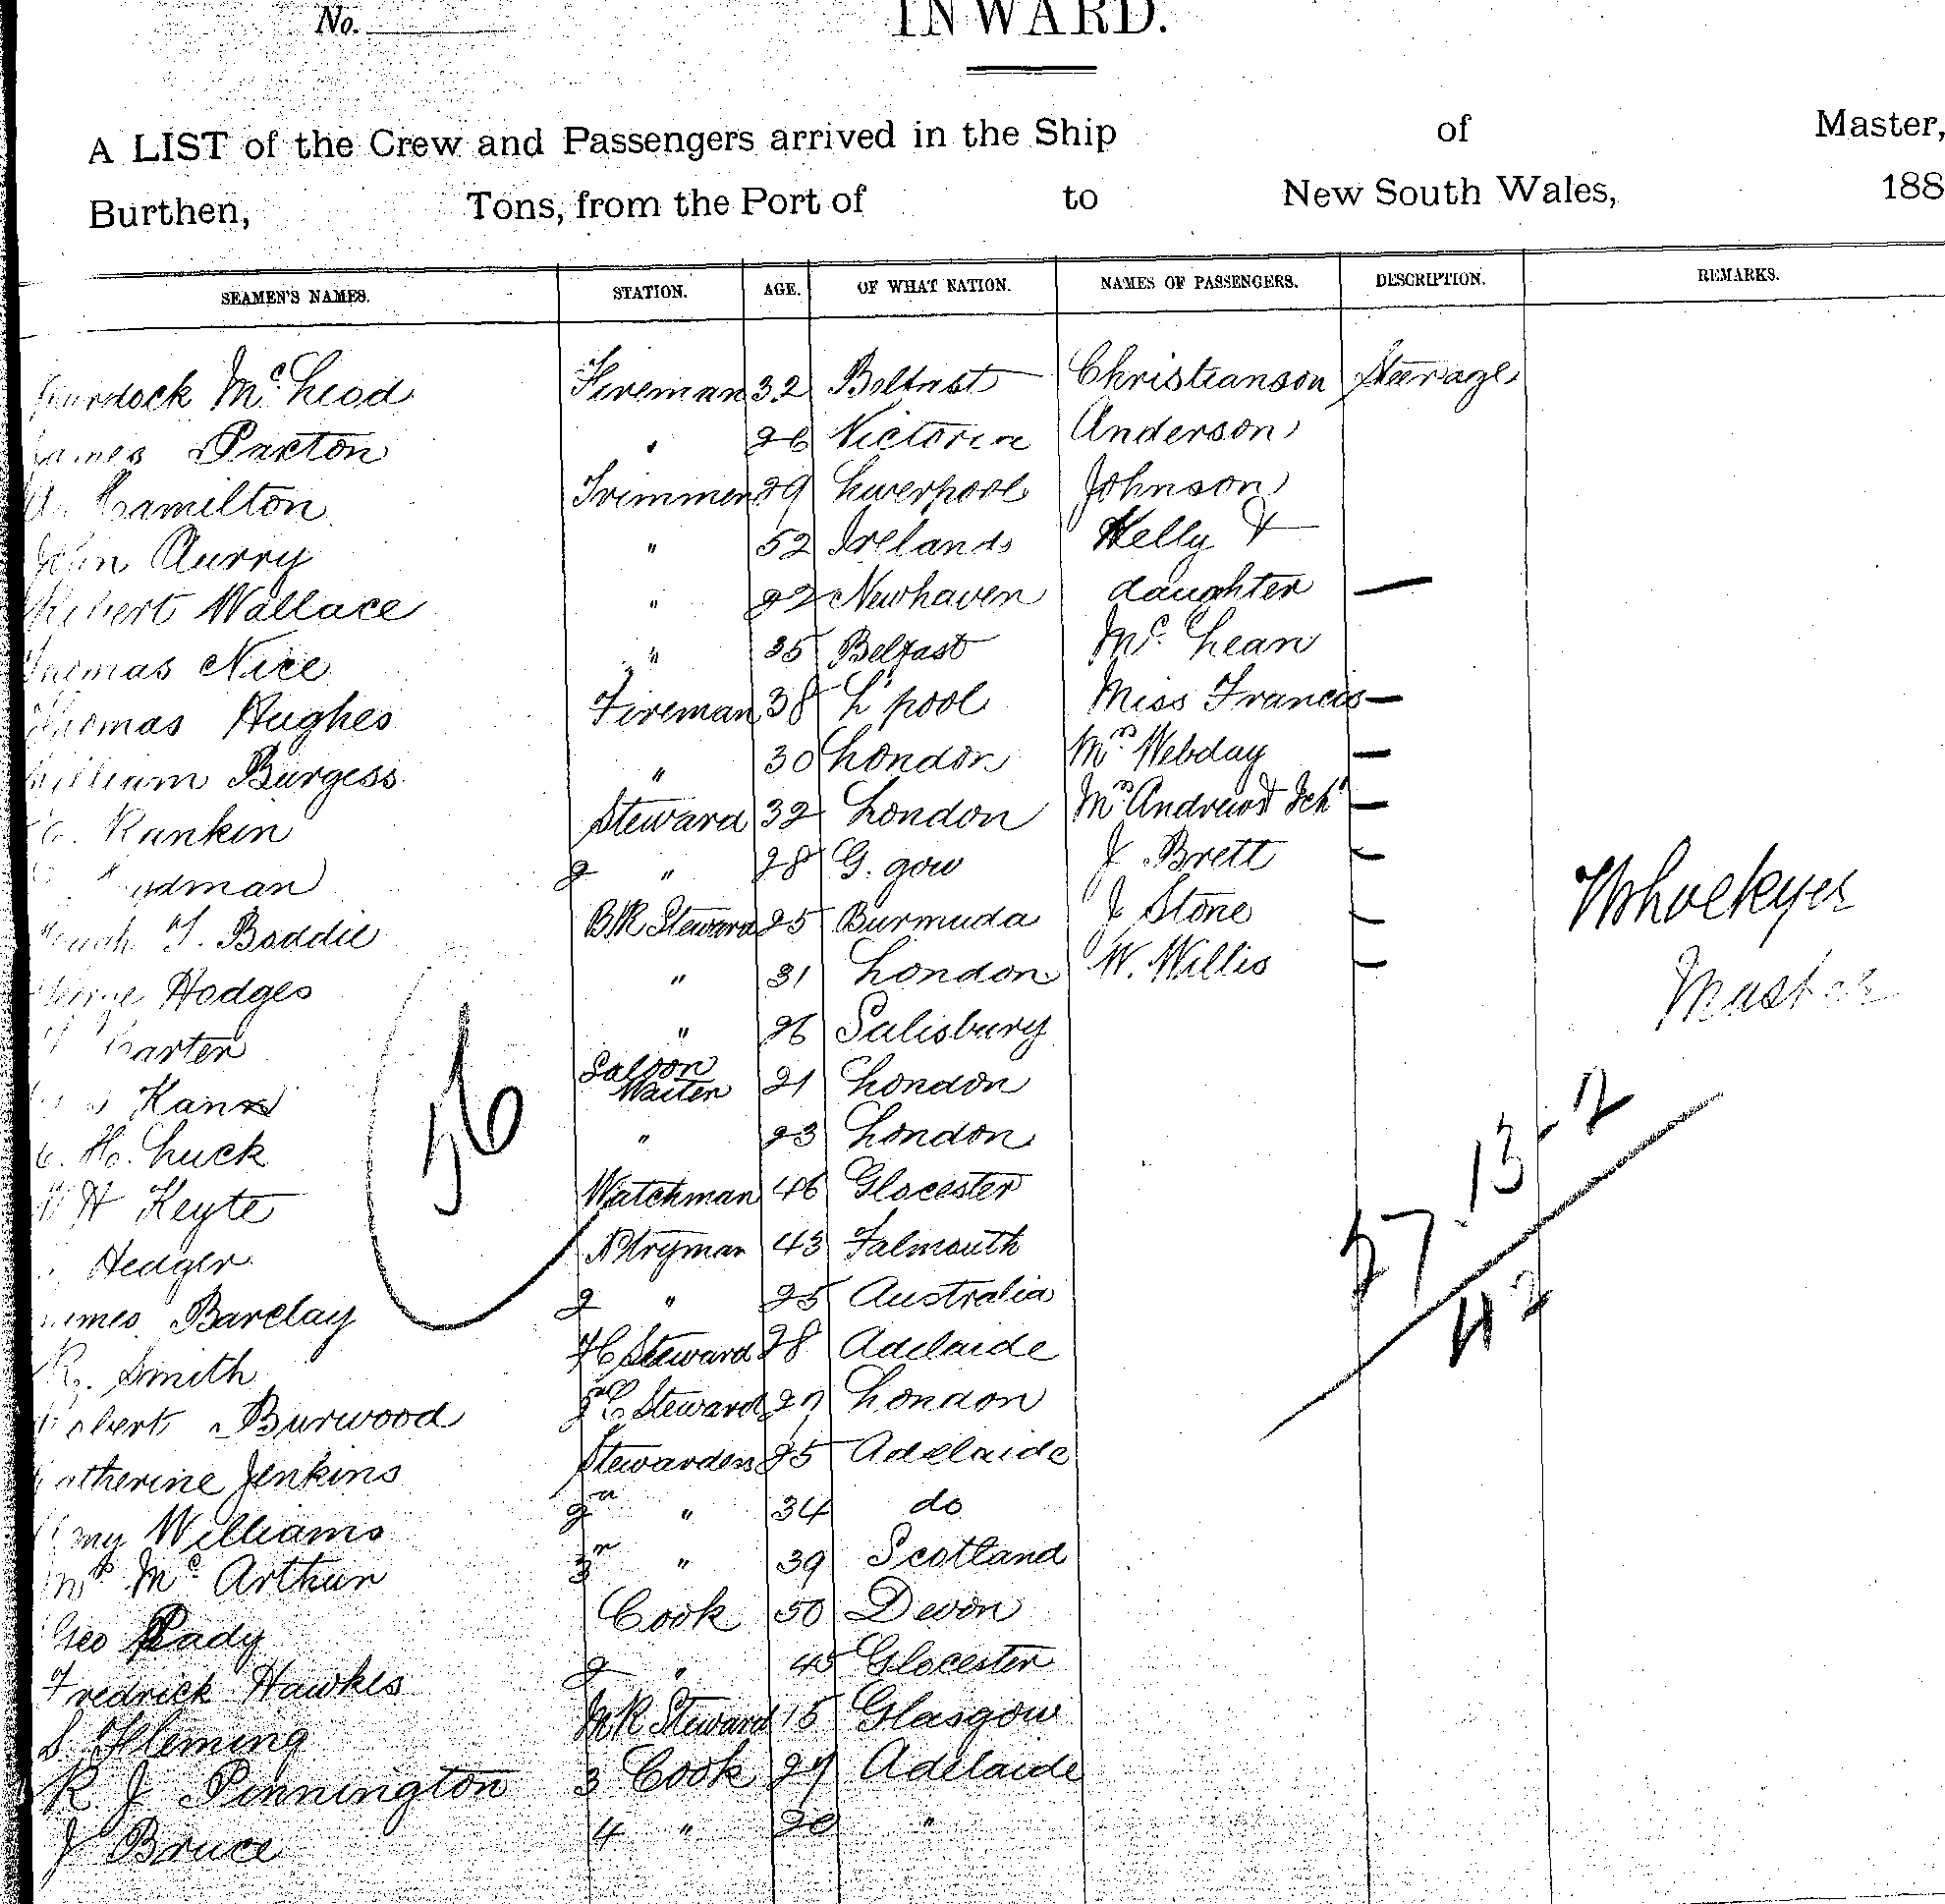 No.
INWARD.
A LIST of the Crew and Passengers arrived in the Ship of Master,
Burthen, Tons, from the Port of to New South Wales, 188
SEAMEN'S NAMES. STATION. AGE. OF WHAT NATION. NAMES OF PASSENGERS. DESCRIPTION. REMARKS.
Murdock Mc Leod Fireman 32 Belfast Christianson Steerage
James Paxton " 26 Victoria Anderson
Hamilton Trimmer 29 Liverpool Johnson
John Curry " 52 Ireland Kelly &
Robert Wallace " 22 Newhaven daughter —
Thomas Nice " 35 Belfast Mc Lean
Thomas Hughes Fireman 38 L'pool Miss Francis —
William Burgess " 30 London Mrs Webday —
Rankin Steward 32 London Mrs Andrews & Ich —
2 " 28 G. gow J Brett —
Hugh T. Boddie BR Steward 25 Burmuda J Stone —
George Hodges " 31 London W. Willis —
Carter " 26 Salisbury
Kann Saloon Waiter 21 London
H. Luck " 23 London
W H Keyte Watchman 46 Glocester
Hedger Ptryman 43 Falmouth
James Barclay 2 " 25 Australia
R. Smith FC Steward 28 Adelaide
Robert Burwood 2n C Steward 27 London
Catherine Jenkins Stewardess 25 Adelaide
Amy Williams 2n " 34 do
Mrs Mc Arthur 3r " 39 Scotland
Geo Eady Cook 50 Devon
Fredrick Hawkes 2 " 45 Glocester
S Fleming MR Steward 15 Glasgow
R. J Pinnington 3 Cook 27 Adelaide
J Bruce 4 " 20 "
56
Master
57.13-2